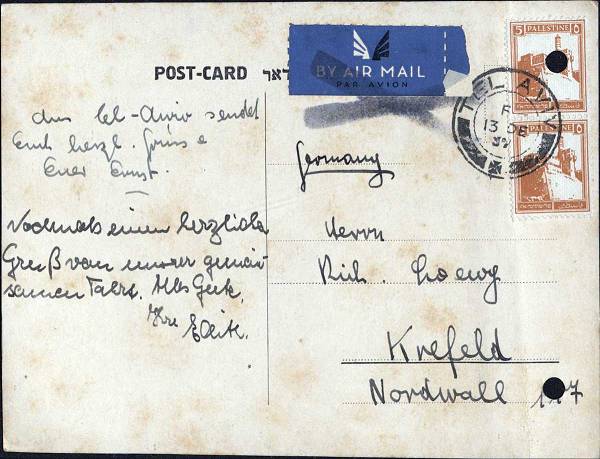 POST-CARD דאר
BY AIR MAIL
PAR AVION
5 PALESTINE
PALESTINE
TEL AVIV
13 DE
Aus Tel-Aviv sendet
Euch herzl. Grüsse
Euer Ernst.
Nochmals einen herzlichen
Gruß von unserer gemein-
samen Fahrt. Alles Gute,
Ihre Edith.
Germany
Herrn
Rich. Loewy
Krefeld
Nordwall